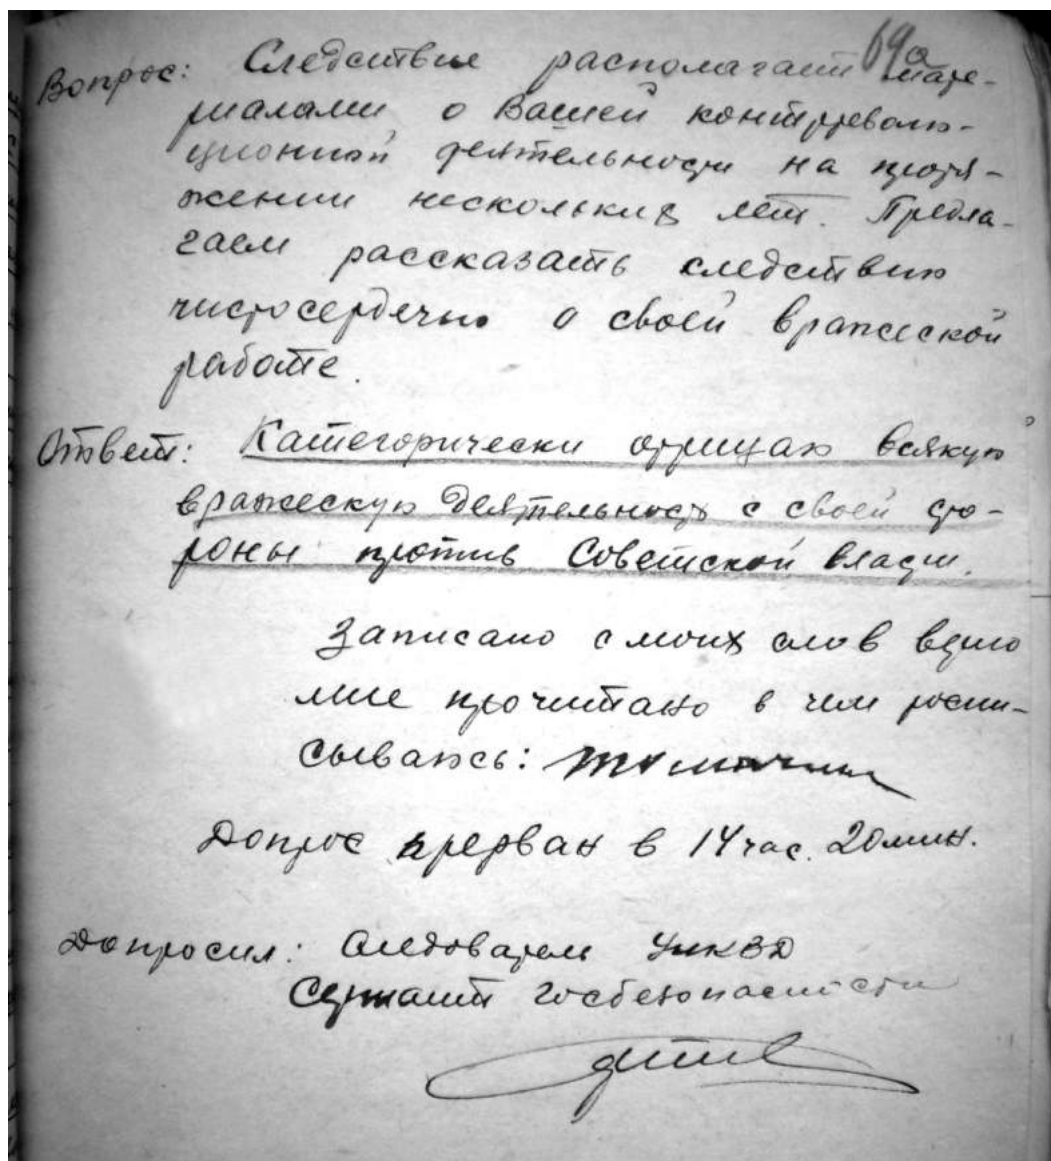 69а
Вопрос: Следствие располагает мате-
риалами о Вашей контрреволю-
ционной деятельности на протя-
жении нескольких лет. Предла-
гаем рассказать следствию
чистосердечно о своей вражеской
работе.
Ответ: Категорически отрицаю всякую
вражескую деятельность с своей сто-
роны против Советской власти.
Записано с моих слов верно
мне прочитано в чем распи-
сываюсь:
Допрос прерван в 14 час. 20 мин.
Допросил: Следователь УНКВД
Сержант госбезопасности